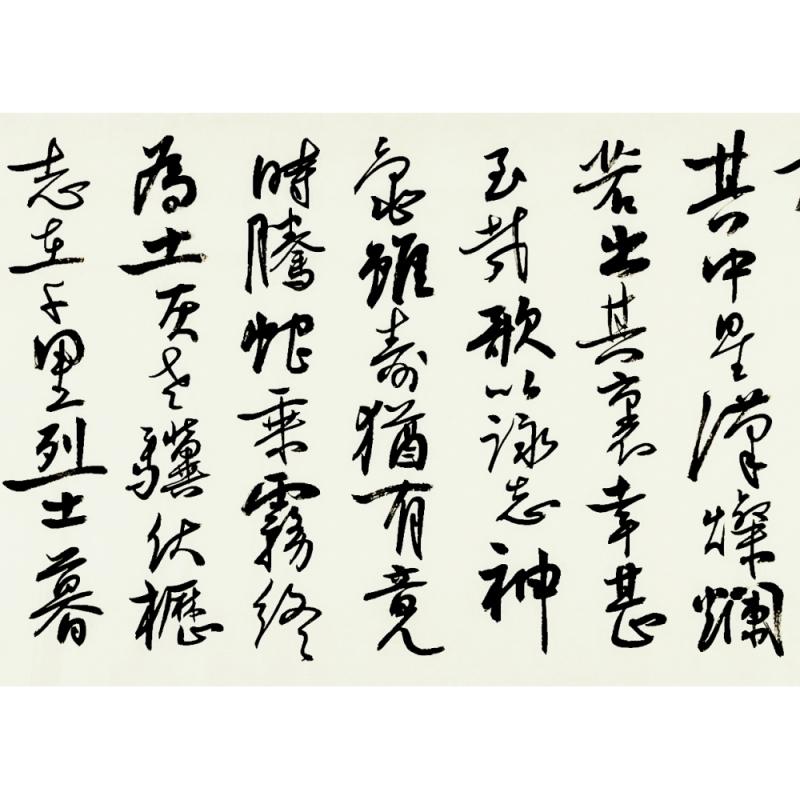 其中星漢燦爛
若出其裏幸甚
至哉歌以詠志神
龜雖壽猶有竟
時騰蛇乘霧終
為土灰老驥伏櫪
志在千里烈士暮